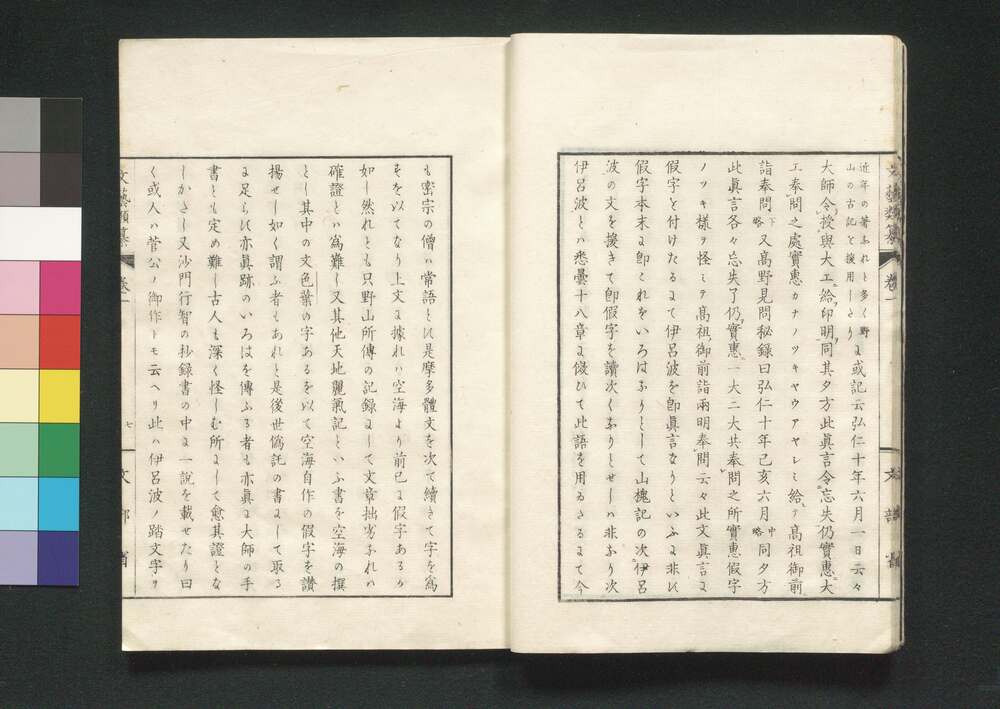 近年の著なれと多く野
山の古記を援用しとり
に或記云弘仁十年六月一日云々
大師令授與大工給印明同其夕方此眞言令忘失仍實惠大
工奉問之處實惠カナノツキヤウアヤシミ給テ高祖御前
詣奉問下略又高野見問秘録曰弘仁十年己亥六月中略同夕方
此眞言各々忘失了仍實惠一大二大共奉問之所實惠假字
ノツキ様ヲ怪ミテ高祖御前詣兩明奉問云々此文眞言に
假字を付けたるまて伊呂波を卽眞言なりといふに非ぴ
假字本末に卽これをいろはなりとして山槐記の次伊呂
波の文を援きて卽假字を讀次くなりとせしハ非なり次
伊呂波とハ悉曇十八章に傚ひて此語を用ゐさるまて今
も密宗の僧ハ常語とぴ是摩多體文を次て續きて字を為
そを以てなり上文に據れハ空海より前已に假字あるか
如し然れとも只野山所傳の記録にして文章拙劣なれハ
確證とハ為難し又其他天地麗氣記といふ書を空海の撰
とし其中の文色葉の字あるを以て空海自作の假字を讃
揚せし如く謂ふ者もあれと是後世偽託の書にして取る
に足らぴ亦眞跡のいろはを傳ふる者も亦眞に大師の手
書とも定め難し古人も深く怪しむ所にして愈其證とな
しかさし又沙門行智の抄録書の中に一說を載せたり曰
く或人ハ菅公ノ御作トモ云ヘリ此ハ伊呂波ノ踏文字ヲ
文藝類纂
卷一
七
文部省